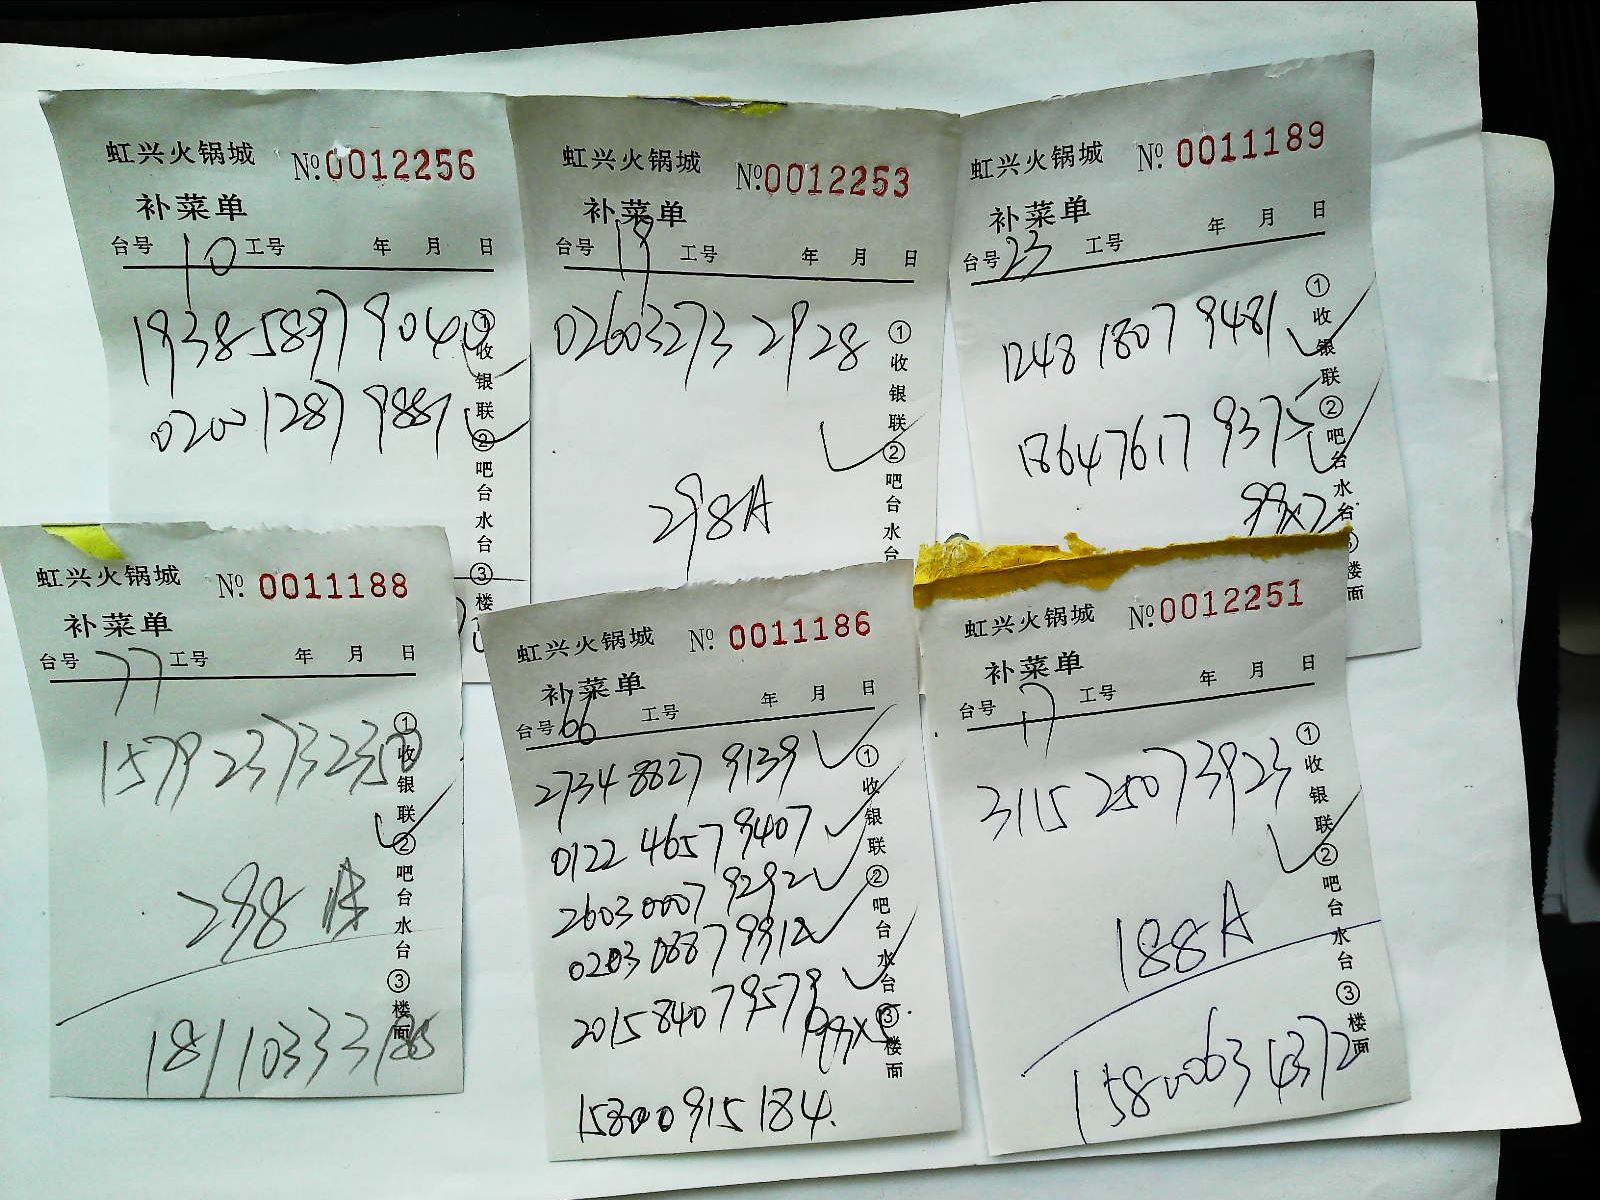 虹兴火锅城 №.0012256
补菜单
台号 10 工号 年 月 日
1938 5897 9040
0200 1287 9887
①收银联②吧台水台③楼
虹兴火锅城 №.0012253
补菜单
台号 19 工号 年 月 日
02603273 2928
298A
①收银联②吧台水台
虹兴火锅城 №.0011189
补菜单
台号 23 工号 年 月 日
1248 1807 9481
18647617 9375
99x2
①收银联②吧台水台③楼面
虹兴火锅城 №.0011188
补菜单
台号 77 工号 年 月 日
157923732350
298
①收银联②吧台水台③楼面
虹兴火锅城 №.0011186
补菜单
台号 66 工号 年 月 日
2734 8827 9139
0122 4657 9407
2603 0007 9292
0203 0887 9912
2015 8407 9579
99x5
15800915184.
①收银联②吧台水台③楼面
虹兴火锅城 №.0012251
补菜单
台号 17 工号 年 月 日
3115 25073923
188A
15800634372
①收银联②吧台水台③楼面